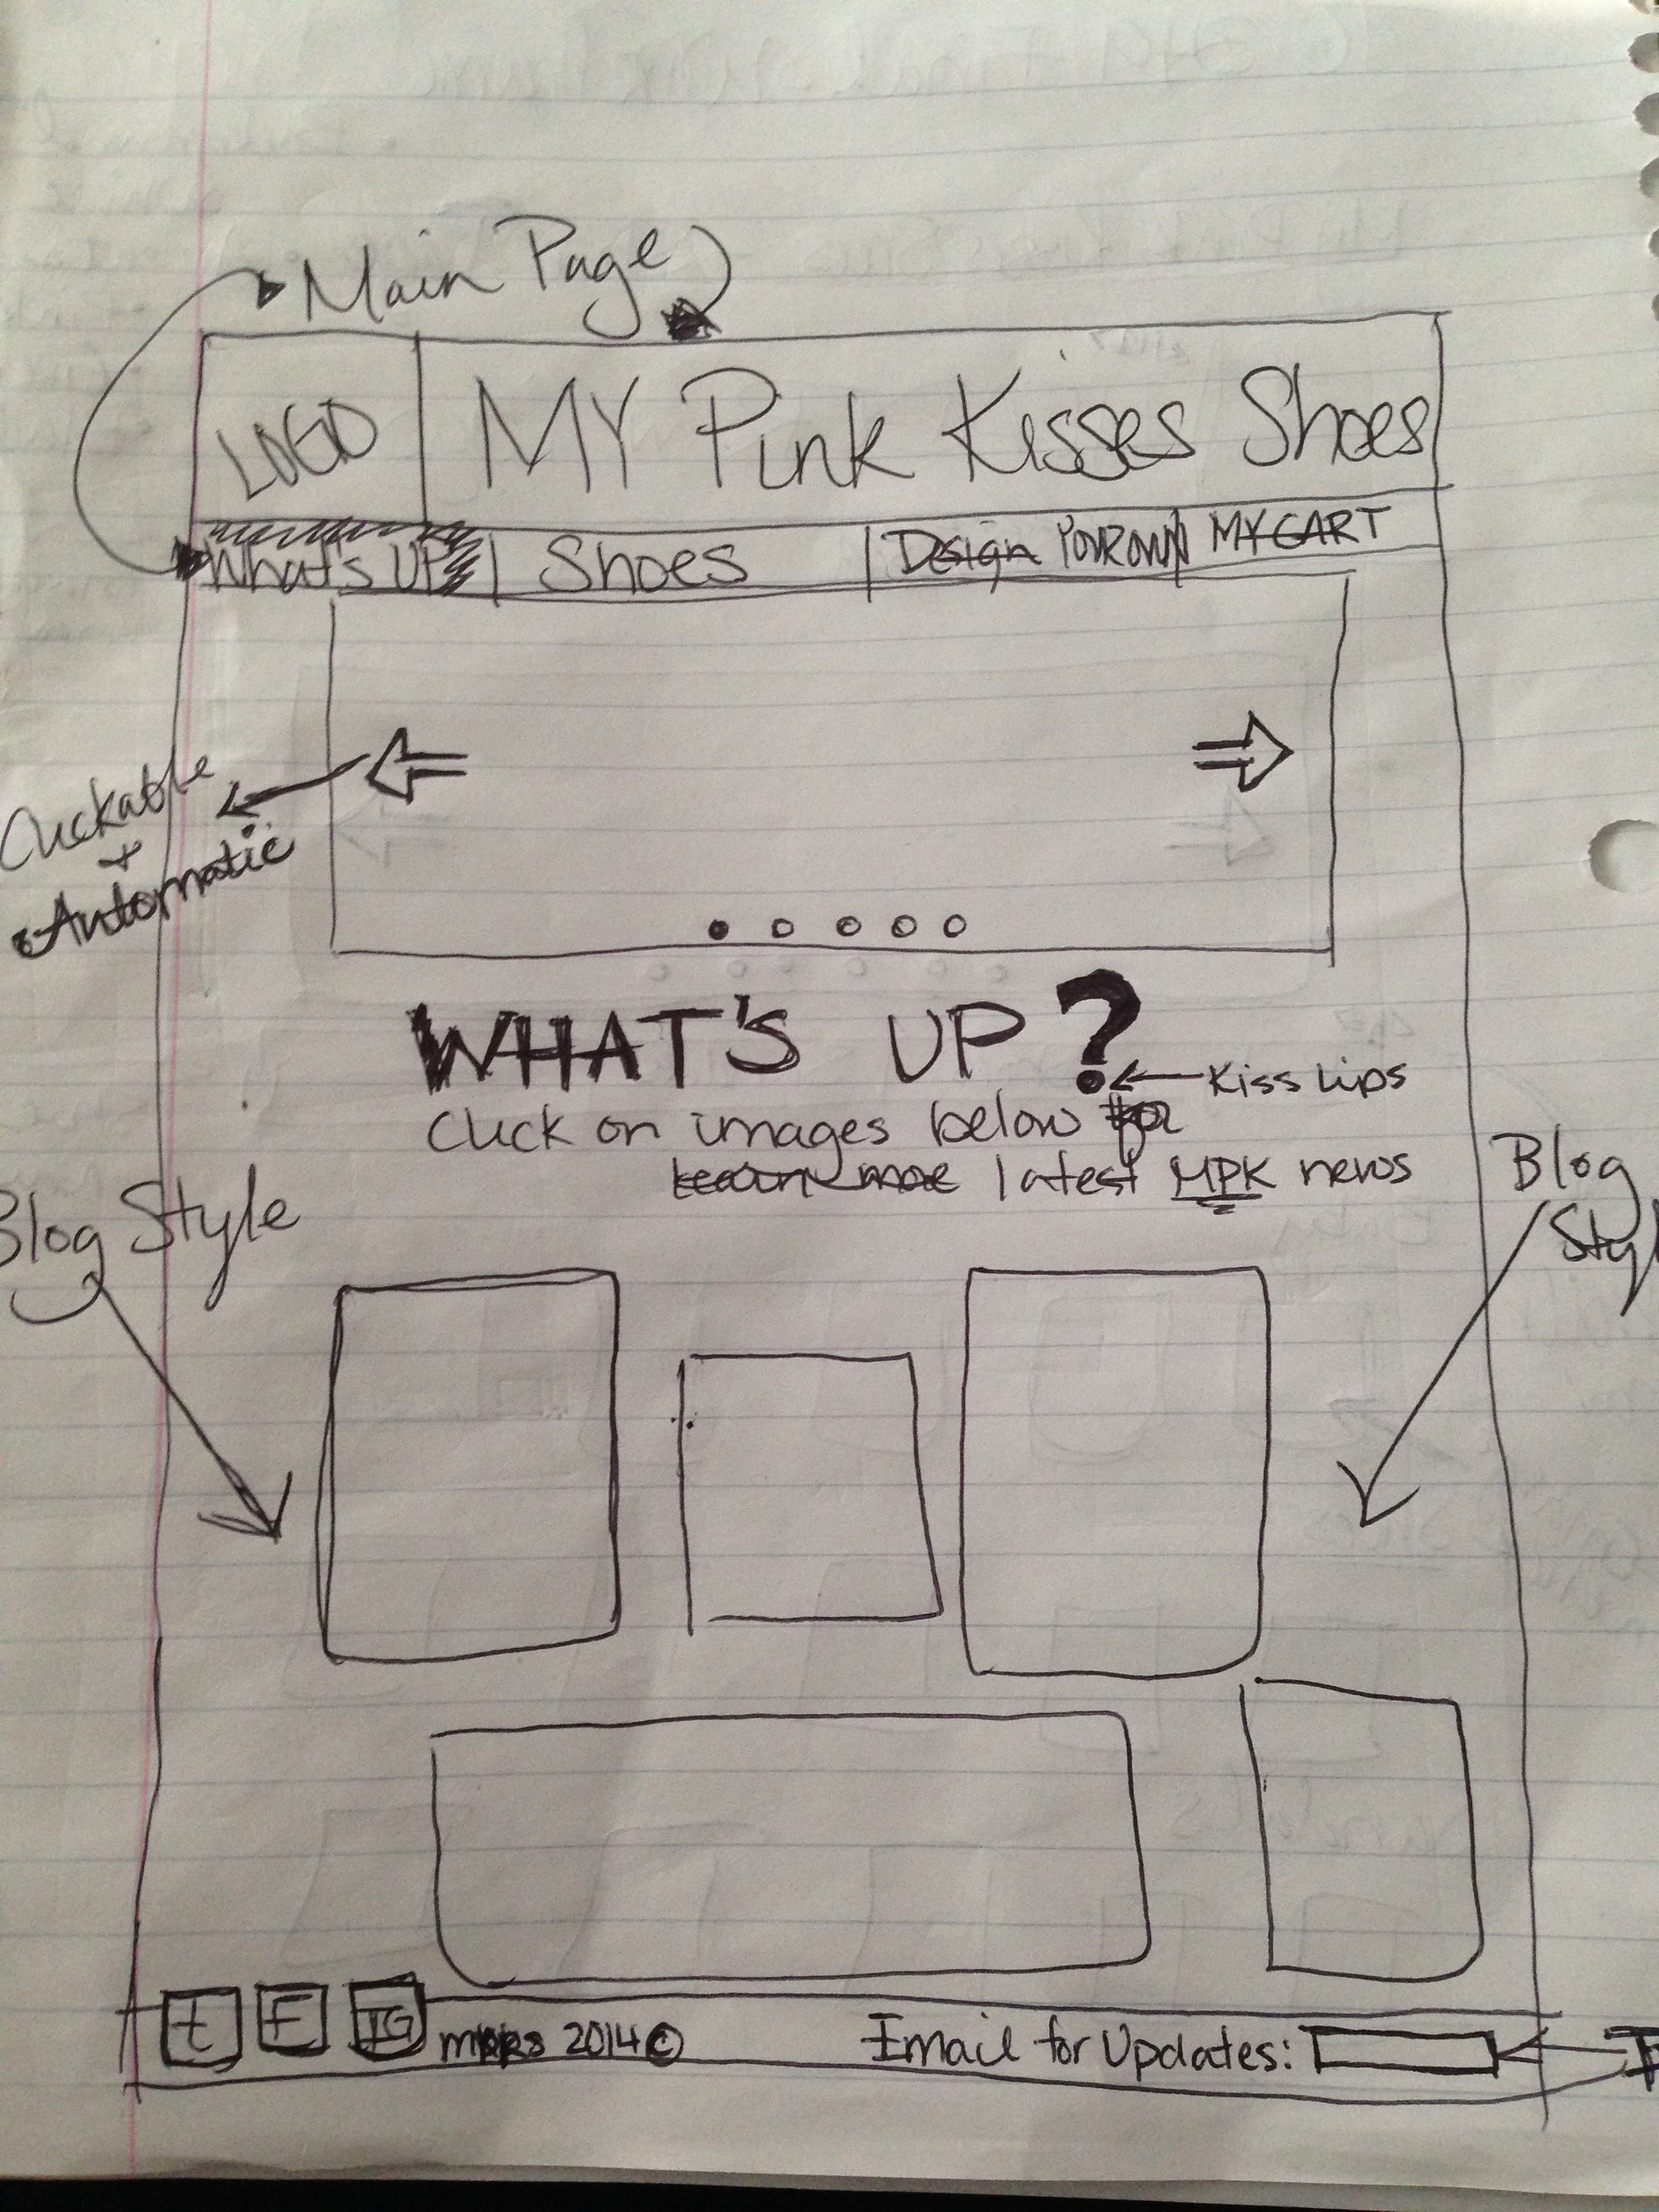 Main Page
LOGO
MY Pink Kisses Shoes
What's UP | Shoes | Design YOUR OWN | MY CART
Clickable
+
Automatic
WHAT'S UP?
Kiss Lips
Click on images below for
learn more latest MPK news
Blog Style
Blog
Styl
t F IG mpks 2014© Email for Updates: